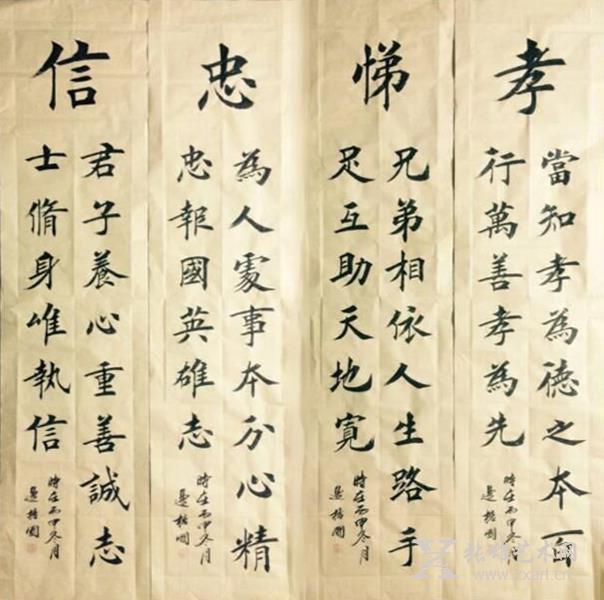 孝
當知孝為德之本百
行萬善孝為先
時在丙申冬月
悌
兄弟相依人生路手
足互助天地寬
時在丙申冬月
忠
為人處事本分心精
忠報國英雄志
時在丙申冬月
信
君子養心重善誠志
士脩身唯執信
時在丙申冬月
张雄艺术网
www.zxart.cn